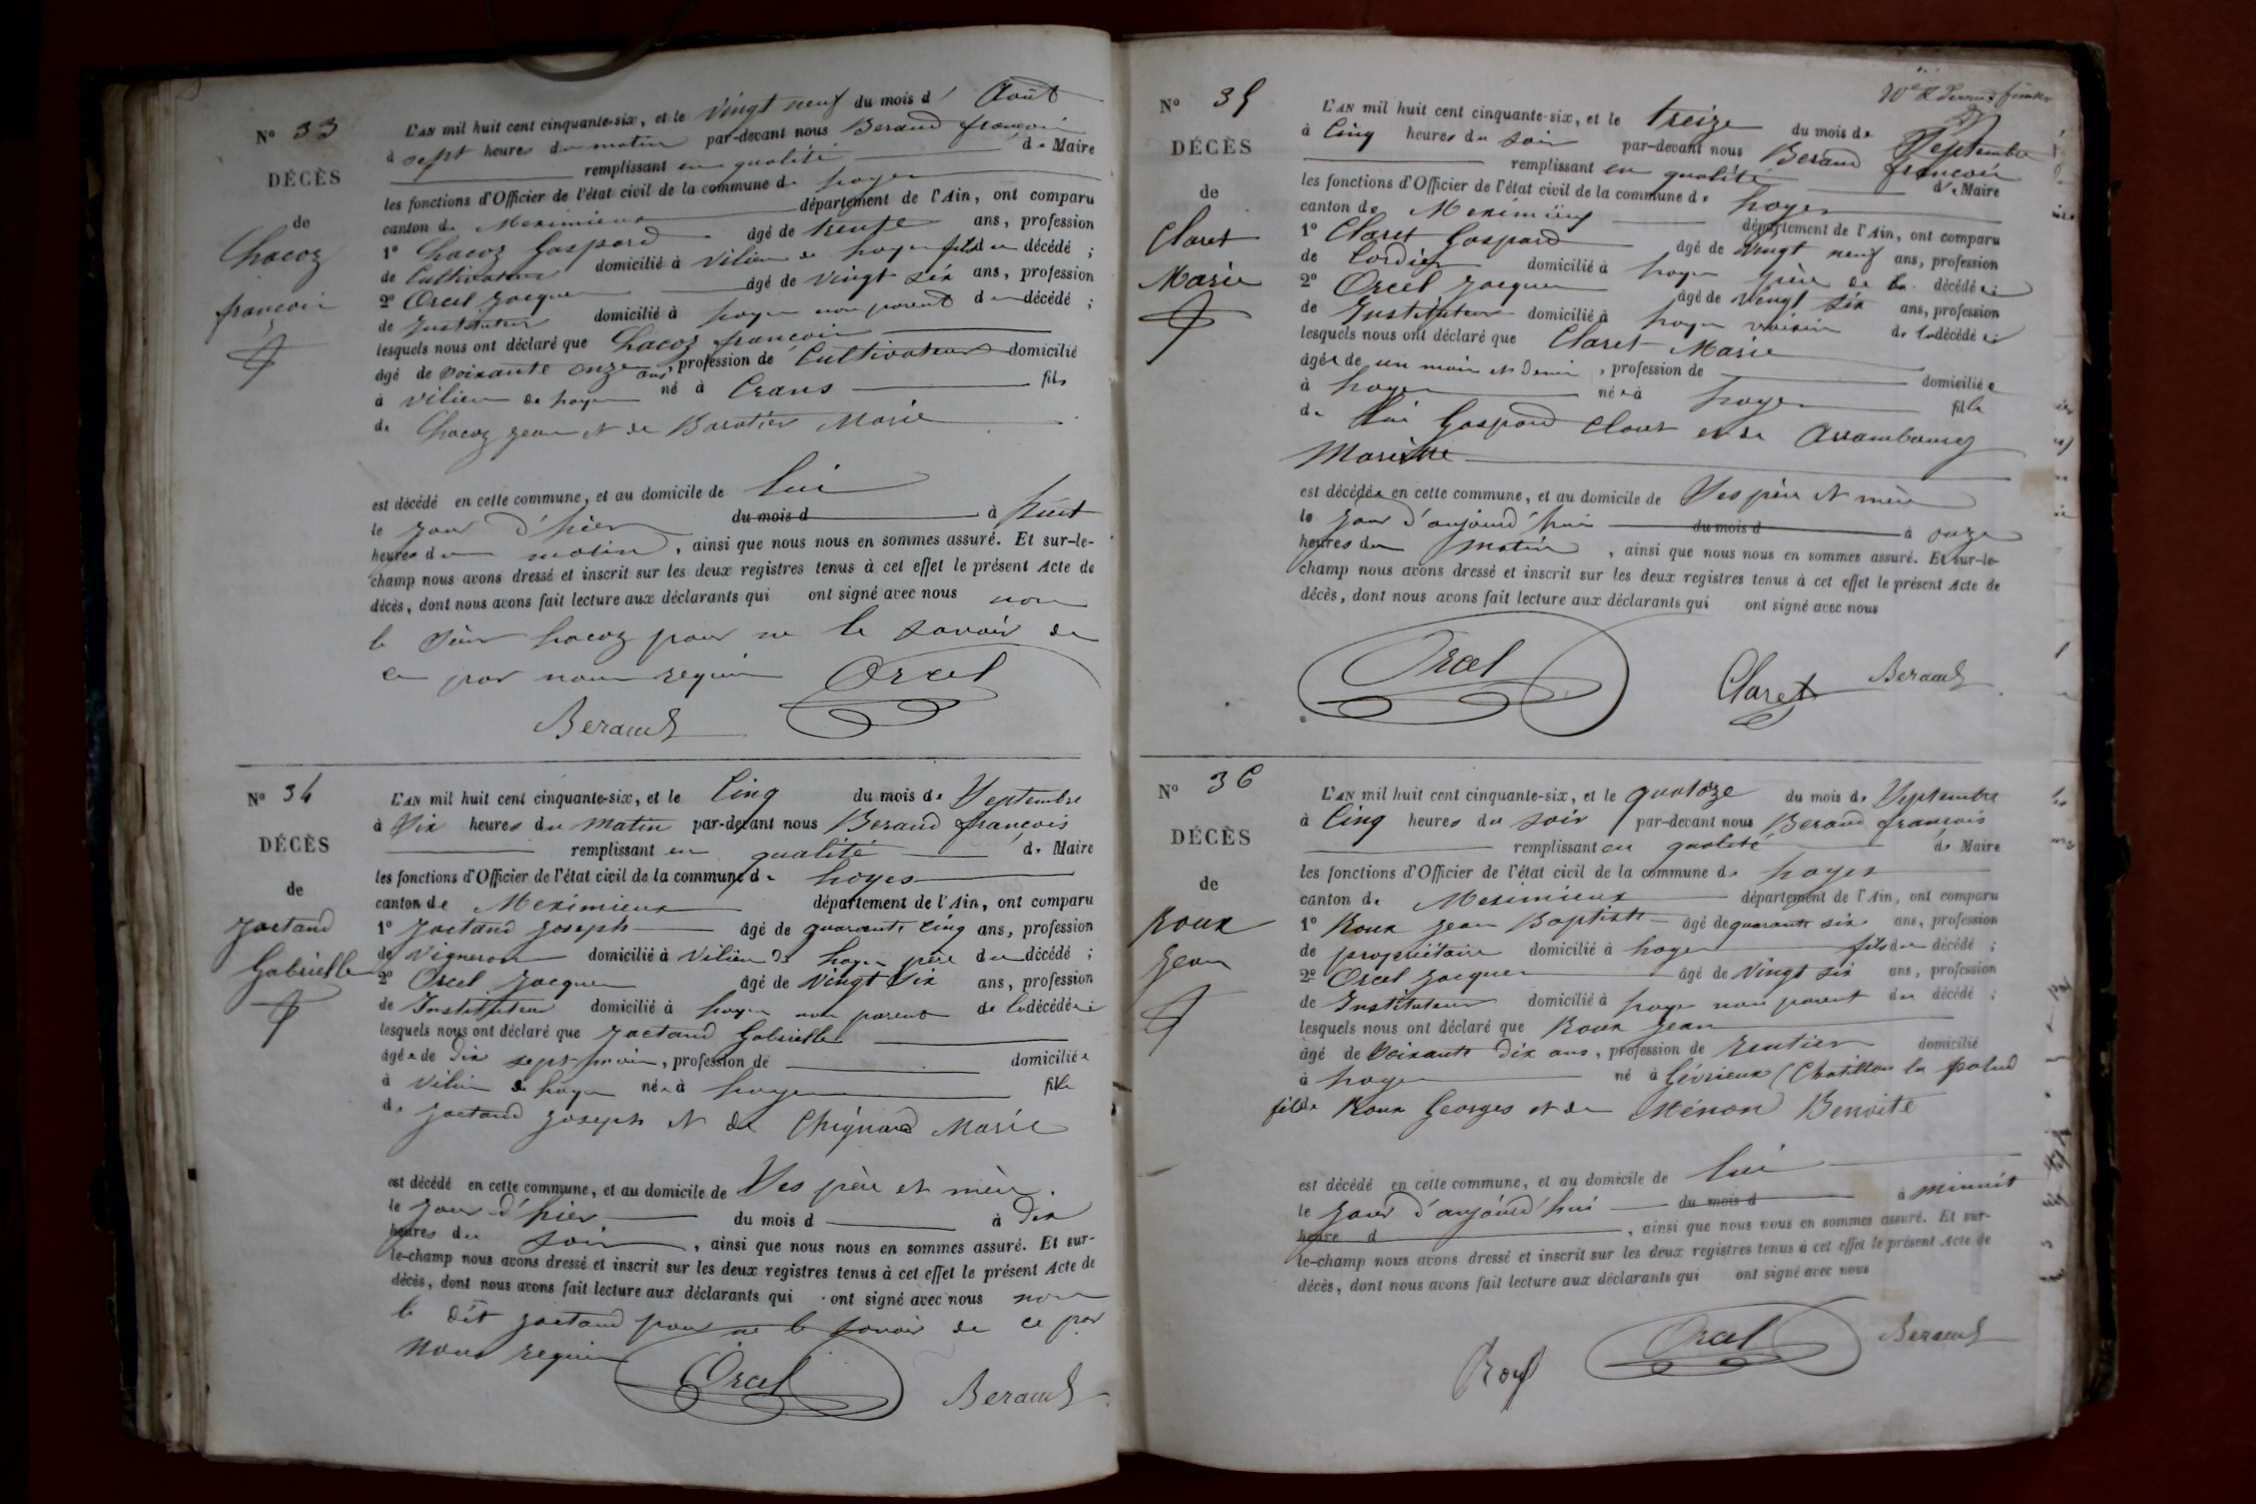 N° 33
DÉCÈS
de
Chacoz
françois
L'AN mil huit cent cinquante-six, et le vingt neuf du mois d' Août
à sept heures du matin par-devant nous Beraud françois
remplissant en qualité de Maire
les fonctions d'Officier de l'état civil de la commune de loyes
canton de Meximieux département de l'Ain, ont comparu
1° Chacoz Gaspard âgé de trente ans, profession
de Cultivateur domicilié à Vilieu de loyes fils du décédé ;
2° Orcel Jacques âgé de vingt six ans, profession
de Instituteur domicilié à loyes non parent du décédé ;
lesquels nous ont déclaré que Chacoz françois
âgé de soixante onze ans, profession de Cultivateur domicilié
à Vilieu de loyes né à Crans fils
de Chacoz jean et de Baratier Marie
est décédé en cette commune, et au domicile de lui
le jour d'hier du mois d à huit
heures du matin, ainsi que nous nous en sommes assuré. Et sur-le-
champ nous avons dressé et inscrit sur les deux registres tenus à cet effet le présent Acte de
décès, dont nous avons fait lecture aux déclarants qui ont signé avec nous non
le Sieur Chacoz pour ne le savoir de
ce par nous requis Orcel
Beraud
N° 34
DÉCÈS
de
Jactand
Gabrielle
L'AN mil huit cent cinquante-six, et le Cinq du mois de Septembre
à Six heures du matin par-devant nous Beraud françois
remplissant en qualité de Maire
les fonctions d'Officier de l'état civil de la commune de loyes
canton de Meximieux département de l'Ain, ont comparu
1° Jactand Joseph âgé de quarante cinq ans, profession
de Vigneron domicilié à Vilieu de loyes père du décédé ;
2° Orcel Jacques âgé de vingt Six ans, profession
de Instituteur domicilié à loyes non parent de la décédée ;
lesquels nous ont déclaré que Jactand Gabrielle
âgée de dix sept mois, profession de domiciliée
à Vilieu de loyes née à loyes fille
de Jactand Joseph et de Chignard Marie
est décédé en cette commune, et au domicile de Ses père et mère
le jour d'hier du mois d à dix
heures du soir, ainsi que nous nous en sommes assuré. Et sur-
le-champ nous avons dressé et inscrit sur les deux registres tenus à cet effet le présent Acte de
décès, dont nous avons fait lecture aux déclarants qui ont signé avec nous non
le dit Jactand pour ne le savoir de ce par
nous requis Orcel Beraud
N° 35
DÉCÈS
de
Claret
Marie
L'AN mil huit cent cinquante-six, et le treize du mois de Septembre
à Cinq heures du soir par-devant nous Beraud françois
remplissant en qualité de Maire
les fonctions d'Officier de l'état civil de la commune de loyes
canton de Meximieux département de l'Ain, ont comparu
1° Claret Gaspard âgé de vingt neuf ans, profession
de Cordier domicilié à loyes père de la décédée ;
2° Orcel Jacques âgé de vingt six ans, profession
de Instituteur domicilié à loyes voisin de la décédée ;
lesquels nous ont déclaré que Claret Marie
âgée de un mois et demi, profession de domiciliée
à loyes née à loyes fille
de lui Gaspard Claret et de Arrambourg
Mariette
est décédée en cette commune, et au domicile de Ses père et mère
le jour d'aujourd'hui du mois d à onze
heures du matin, ainsi que nous nous en sommes assuré. Et sur-le-
champ nous avons dressé et inscrit sur les deux registres tenus à cet effet le présent Acte de
décès, dont nous avons fait lecture aux déclarants qui ont signé avec nous
Orcel Claret Beraud
N° 36
DÉCÈS
de
Roux
Jean
L'AN mil huit cent cinquante-six, et le quatorze du mois de Septembre
à Cinq heures du soir par-devant nous Beraud françois
remplissant en qualité de Maire
les fonctions d'Officier de l'état civil de la commune de loyes
canton de Meximieux département de l'Ain, ont comparu
1° Roux Jean Baptiste âgé de quarante six ans, profession
de propriétaire domicilié à loyes fils du décédé ;
2° Orcel Jacques âgé de vingt six ans, profession
de Instituteur domicilié à loyes non parent du décédé ;
lesquels nous ont déclaré que Roux Jean
âgé de soixante dix ans, profession de rentier domicilié
à loyes né à Gévrieux (Chatillon la palud
fils de Roux Georges et de Ménon Benoite
est décédé en cette commune, et au domicile de lui
le jour d'aujourd'hui du mois d à minuit
heure d, ainsi que nous nous en sommes assuré. Et sur-
le-champ nous avons dressé et inscrit sur les deux registres tenus à cet effet le présent Acte de
décès, dont nous avons fait lecture aux déclarants qui ont signé avec nous
Roux Orcel Beraud